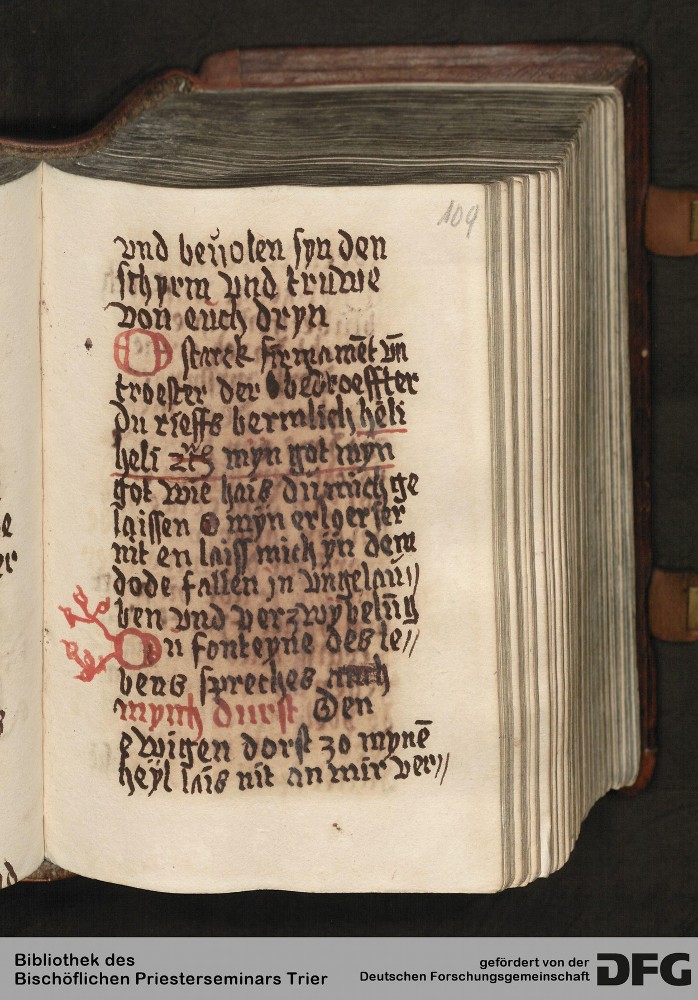 109
vnd beuolen syn den
schyrm vnd truwe
von euch dryn
O starck firmamēt vn̄
troester der bedroeffter
Du rieffs bermlich heli
heli myn got myn
got wie hais du mich ge
laissen O myn erloeser
nit en laiss mich yn dem
dode fallen jn vngelau//
ben vnd verzwybelūg
Du fonteyne des le//
bens spreches mich
mych durst Den
ewigen dorst zo mynē
heyl lais nit an mir ver//
Bibliothek des
Bischöflichen Priesterseminars Trier
gefördert von der
Deutschen Forschungsgemeinschaft
DFG